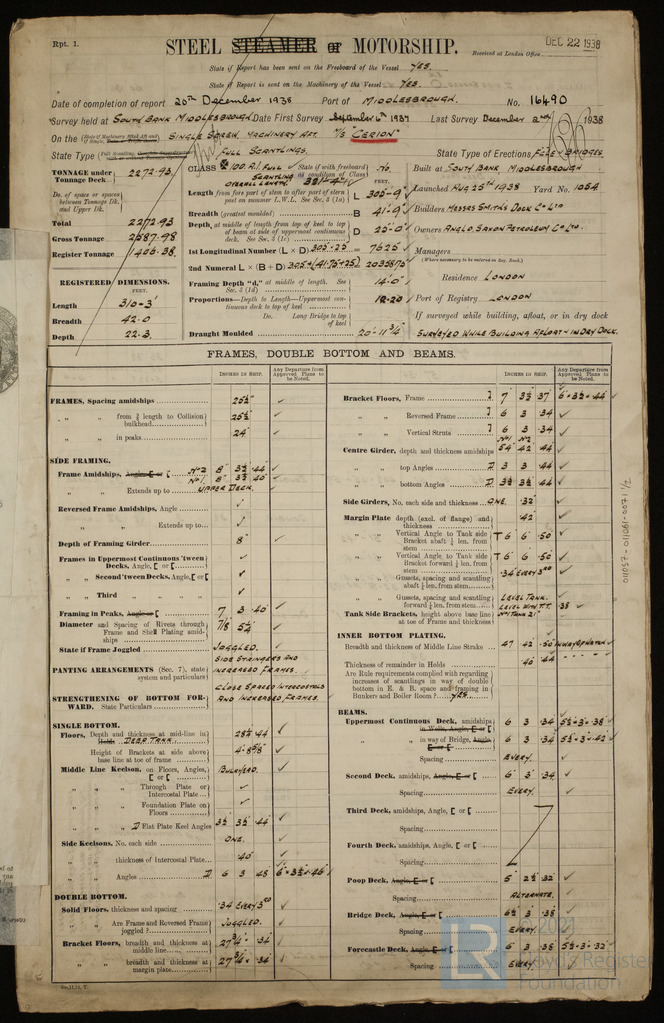 Rpt. 1.
DEC 22 1938
Received at London Office
STEEL STEAMER OR MOTORSHIP.
State if Report has been sent on the Freeboard of the Vessel YES.
State if Report is sent on the Machinery of the Vessel YES.
Date of completion of report 20th December 1938 Port of MIDDLESBROUGH. No. 16490
Survey held at SOUTH BANK MIDDLESBROUGH Date First Survey September 6th 1937 Last Survey December 2nd 1938
On the SINGLE SCREW, MACHINERY AFT. M/S "CERION"
State Type FULL SCANTLINGS. State Type of Erections
TONNAGE under Tonnage Deck 2272.93
CLASS 100.A.1. FULL SCANTLING State if with freeboard as condition of Class No.
OVERALL LENGTH.
Built at SOUTH BANK MIDDLESBROUGH
FEET.
Do. of space or spaces between Tonnage Dk. and Upper Dk.
Length from fore part of stem to after part of stern post on summer L.W.L. See Sec. 3 (1a) L 305'-9"
Launched AUG 25th 1938 Yard No. 1054
Breadth (greatest moulded) B 41'-9"
Builders MESSRS SMITH'S DOCK Co LTD
Total 2272.93
Depth, at middle of length from top of keel to top of beam at side of uppermost continuous deck. See Sec. 3 (1c) D 25'-0"
Gross Tonnage 2587.98
Owners ANGLO SAXON PETROLEUM Co LTD.
Register Tonnage 1406.38.
1st Longitudinal Number (L × D) = 7625
Managers
(Where necessary to be entered in Reg. Book.)
2nd Numeral L × (B + D) 305 × (41.75+25)
REGISTERED DIMENSIONS.
FEET.
Framing Depth "d," at middle of length. See Sec. 3 (1d) 14'-0"
Residence LONDON
Length 310.3
Proportions—Depth to Length—Uppermost continuous deck to top of keel 12.20
Port of Registry LONDON
Breadth 42.0
Do. Long Bridge to top of keel
If surveyed while building, afloat, or in dry dock
Depth 22.3.
Draught Moulded 20'-11 3/4"
SURVEYED WHILE BUILDING AFLOAT & IN DRY DOCK.
FRAMES, DOUBLE BOTTOM AND BEAMS.
INCHES IN SHIP. Any Departure from Approved Plans to be Noted.
INCHES IN SHIP. Any Departure from Approved Plans to be Noted.
FRAMES, Spacing amidships 25½" ✓
" " from ⅗ length to Collision bulkhead 25½" ✓
" " in peaks 24" ✓
SIDE FRAMING.
Frame Amidships, Angle, E or [ No 2 8" 3½ .44 ✓
No 1. 8" 3½ .40 ✓
" " Extends up to UPPER DECK. ✓
Reversed Frame Amidships, Angle ✓
" " Extends up to ✓
Depth of Framing Girder 8" ✓
Frames in Uppermost Continuous 'tween Decks, Angle, E or [ ✓
" " Second 'tween Decks, Angle, E or [ ✓
" " Third " " ✓
Framing in Peaks, Angle or [ 7 3 .40 ✓
Diameter and Spacing of Rivets through Frame and Shell Plating amidships 7/8 5¼ ✓
State if Frame Joggled JOGGLED. ✓
PANTING ARRANGEMENTS (Sec. 7), state system and particulars SIDE STRINGERS AND INCREASED FRAMES. ✓
STRENGTHENING OF BOTTOM FORWARD. State Particulars CLOSE SPACED INTERCOSTALS AND INCREASED FRAMES. ✓
SINGLE BOTTOM.
Floors, Depth and thickness at mid-line in Holds DEEP TANK 28½ .44 ✓
Height of Brackets at side above base line at toe of frame 4'-8⅝" ✓
Middle Line Keelson, on Floors, Angles, E or [ BULKHEAD. ✓
" " Through Plate or Intercostal Plate ✓
" " Foundation Plate on Floors ✓
" " D Flat Plate Keel Angles 3½ 3½ .44 ✓
Side Keelsons, No. each side ONE. ✓
" " thickness of Intercostal Plate .40 ✓
" " Angles D 6 3 .48 6 × 3½ × .46 ✓
DOUBLE BOTTOM.
Solid Floors, thickness and spacing .34 EVERY 3RD ✓
" " Are Frame and Reversed Frame joggled? JOGGLED. ✓
Bracket Floors, breadth and thickness at middle line 27¾ × .34 ✓
" " breadth and thickness at margin plate 27¾ × .34 ✓
Bracket Floors, Frame 7 3½ .37 6 × 3½ × .44 ✓
" " Reversed Frame 6 3 .34 ✓
" " Vertical Struts 6 3 .34 ✓
No 1 No 2
Centre Girder, depth and thickness amidships 54 .42 .44 ✓
" " top Angles D 3 3 .44 ✓
" " bottom Angles D 3½ 3½ .44 ✓
Side Girders, No. each side and thickness ONE. .32 ✓
Margin Plate depth (excl. of flange) and thickness .42 ✓
" " Vertical Angle to Tank side Bracket abaft ¼ len. from stem T 6 6 .50 ✓
" " Vertical Angle to Tank side Bracket forward ¼ len. from stem T 6 6 .50 ✓
" " Gussets, spacing and scantling abaft ¼ len. from stem .34 EVERY 3RD ✓
" " Gussets, spacing and scantling forward ¼ len. from stem LEVEL TANK. ✓
Tank Side Brackets, height above base line at toe of Frame and thickness LEVEL WITH T.T. .38 ✓
No 1 TANK 21"
INNER BOTTOM PLATING.
Breadth and thickness of Middle Line Strake 47 .42 .50 IN WAY OF HATCH ✓
Thickness of remainder in Holds .40 .44 " " " ✓
Are Rule requirements complied with regarding increases of scantlings in way of double bottom in E. & B. space and framing in Bunkers and Boiler Room? YES. ✓
BEAMS.
Uppermost Continuous Deck, amidships in Wells, Angle, E or [ 6 3 .34 5½ × 3 × .38 ✓
" " in way of Bridge, Angle, E or [ 6 3 .34 5½ × 3 × .42 ✓
Spacing EVERY. ✓
Second Deck, amidships, Angle, E or [ 6 3 .34 ✓
Spacing EVERY. ✓
Third Deck, amidships, Angle, E or [
Spacing
Fourth Deck, amidships, Angle, E or [
Spacing
Poop Deck, Angle, E or [ 5 2½ .32 ✓
Spacing ALTERNATE. ✓
Bridge Deck, Angle, E or [ 6½ 3 .38 ✓
Spacing EVERY. ✓
Forecastle Deck, Angle, E or [ 6 3 .38 5½ × 3 × .32 ✓
Spacing EVERY. ✓
011057 - 011061 - 0071 1/2
LR
© 2021
Lloyd's Register
Foundation